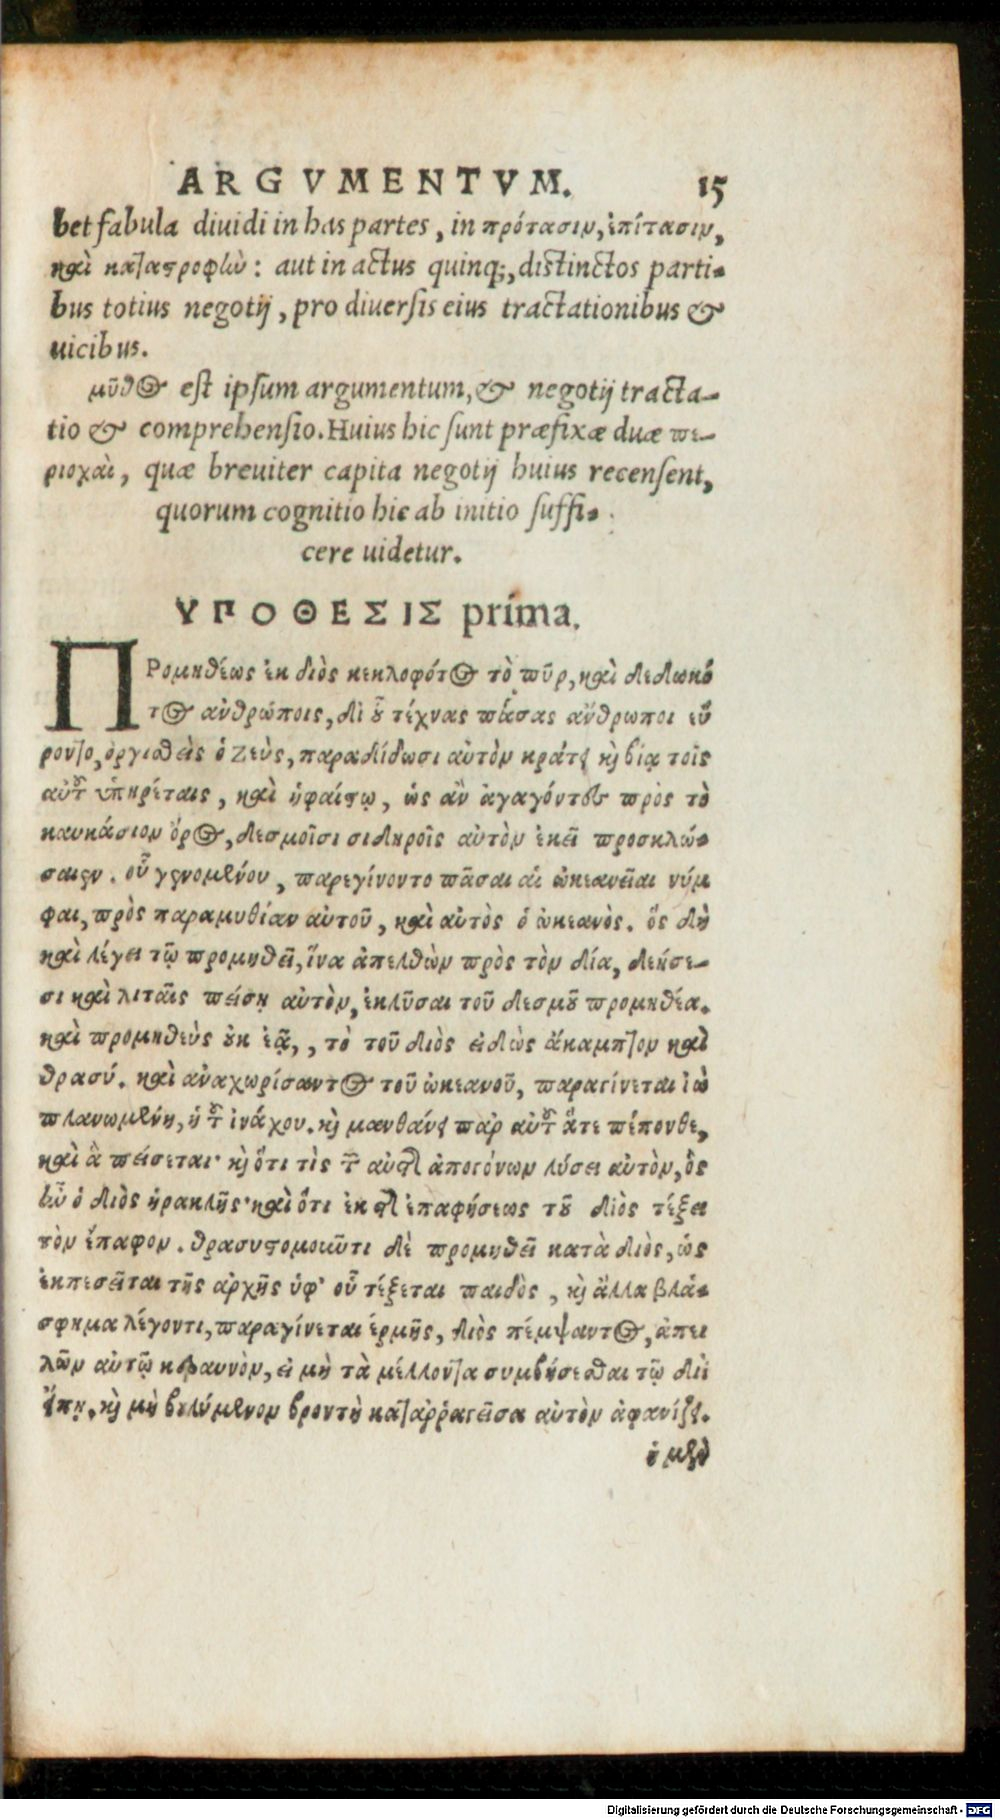 ARGVMENTVM. 15
bet fabula diuidi in has partes, in πρότασιν, ἐπίτασιν,
καὶ καταστροφὴν: aut in actus quinq;, distinctos parti-
bus totius negotij, pro diuersis eius tractationibus &
uicibus.
μῦθος est ipsum argumentum, & negotij tracta-
tio & comprehensio. Huius hic sunt præfixæ duæ πε-
ριοχαὶ, quæ breuiter capita negotij huius recensent,
quorum cognitio hic ab initio suffi-
cere uidetur.
ΥΠΟΘΕΣΙΣ prima.
ΠΡομηθέως ἐκ διὸς κεκλοφότος τὸ πῦρ, καὶ δεδωκό
τος ἀνθρώποις, δι οὗ τέχνας πάσας ἄνθρωποι εὕ
ροντο, ὀργισθεὶς ὁ Ζεὺς, παραδίδωσι αὐτὸν κράτει καὶ βίᾳ τοῖς
αὐτοῦ ὑπηρέταις, καὶ ἡφαίστῳ, ὡς ἂν ἀγαγόντες πρὸς τὸ
καυκάσιον ὄρος, δεσμοῖσι σιδηροῖς αὐτὸν ἐκεῖ προσηλώ-
σαιεν. οὗ γενομένου, παρεγίνοντο πᾶσαι αἱ ὠκεανεῖαι νύμ
φαι, πρὸς παραμυθίαν αὐτοῦ, καὶ αὐτὸς ὁ ὠκεανὸς. ὅς δὴ
καὶ λέγει τῷ προμηθεῖ, ἵνα ἀπελθὼν πρὸς τὸν δία, δεήσε-
σι καὶ λιταῖς πείσῃ αὐτὸν, ἐκλῦσαι τοῦ δεσμοῦ προμηθέα.
καὶ προμηθεὺς οὐκ ἐᾷ, , τὸ τοῦ διὸς εἰδὼς ἄκαμπτον καὶ
θρασύ. καὶ ἀναχωρίσαντος τοῦ ὠκεανοῦ, παραγίνεται ἰὼ
πλανωμένη, ἡ τοῦ ἰνάχου. καὶ μανθάνει παρ αὐτοῦ ἅτε πέπονθε,
καὶ ἃ πείσεται· καὶ ὅτι τὶς τῶν αὐτῆς ἀπογόνων λύσει αὐτὸν, ὃς
ἦν ὁ διὸς ἡρακλῆς· καὶ ὅτι ἐκ τῆς ἐπαφήσεως τοῦ διὸς τέξει
τὸν ἔπαφον. θρασυστομοῦντι δὲ προμηθεῖ κατὰ διὸς, ὡς
ἐκπεσεῖται τῆς ἀρχῆς ὑφ' οὗ τέξεται παιδὸς, καὶ ἄλλα βλά-
σφημα λέγοντι, παραγίνεται ἑρμῆς, διὸς πέμψαντος, ἀπει
λῶν αὐτῷ κεραυνὸν, εἰ μὴ τὰ μέλλοντα συμβήσεσθαι τῷ διὶ
εἴπῃ. καὶ μὴ βουλόμενον βροντὴ καταῤῥαγεῖσα αὐτὸν ἀφανίζει.
ἡ μὲν
Digitalisierung gefördert durch die Deutsche Forschungsgemeinschaft - DFG